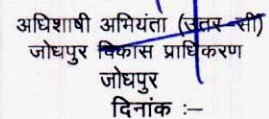 अधिशाषी अभियंता (उत्तर-सी)
जोधपुर विकास प्राधिकरण
जोधपुर
दिनांक :–